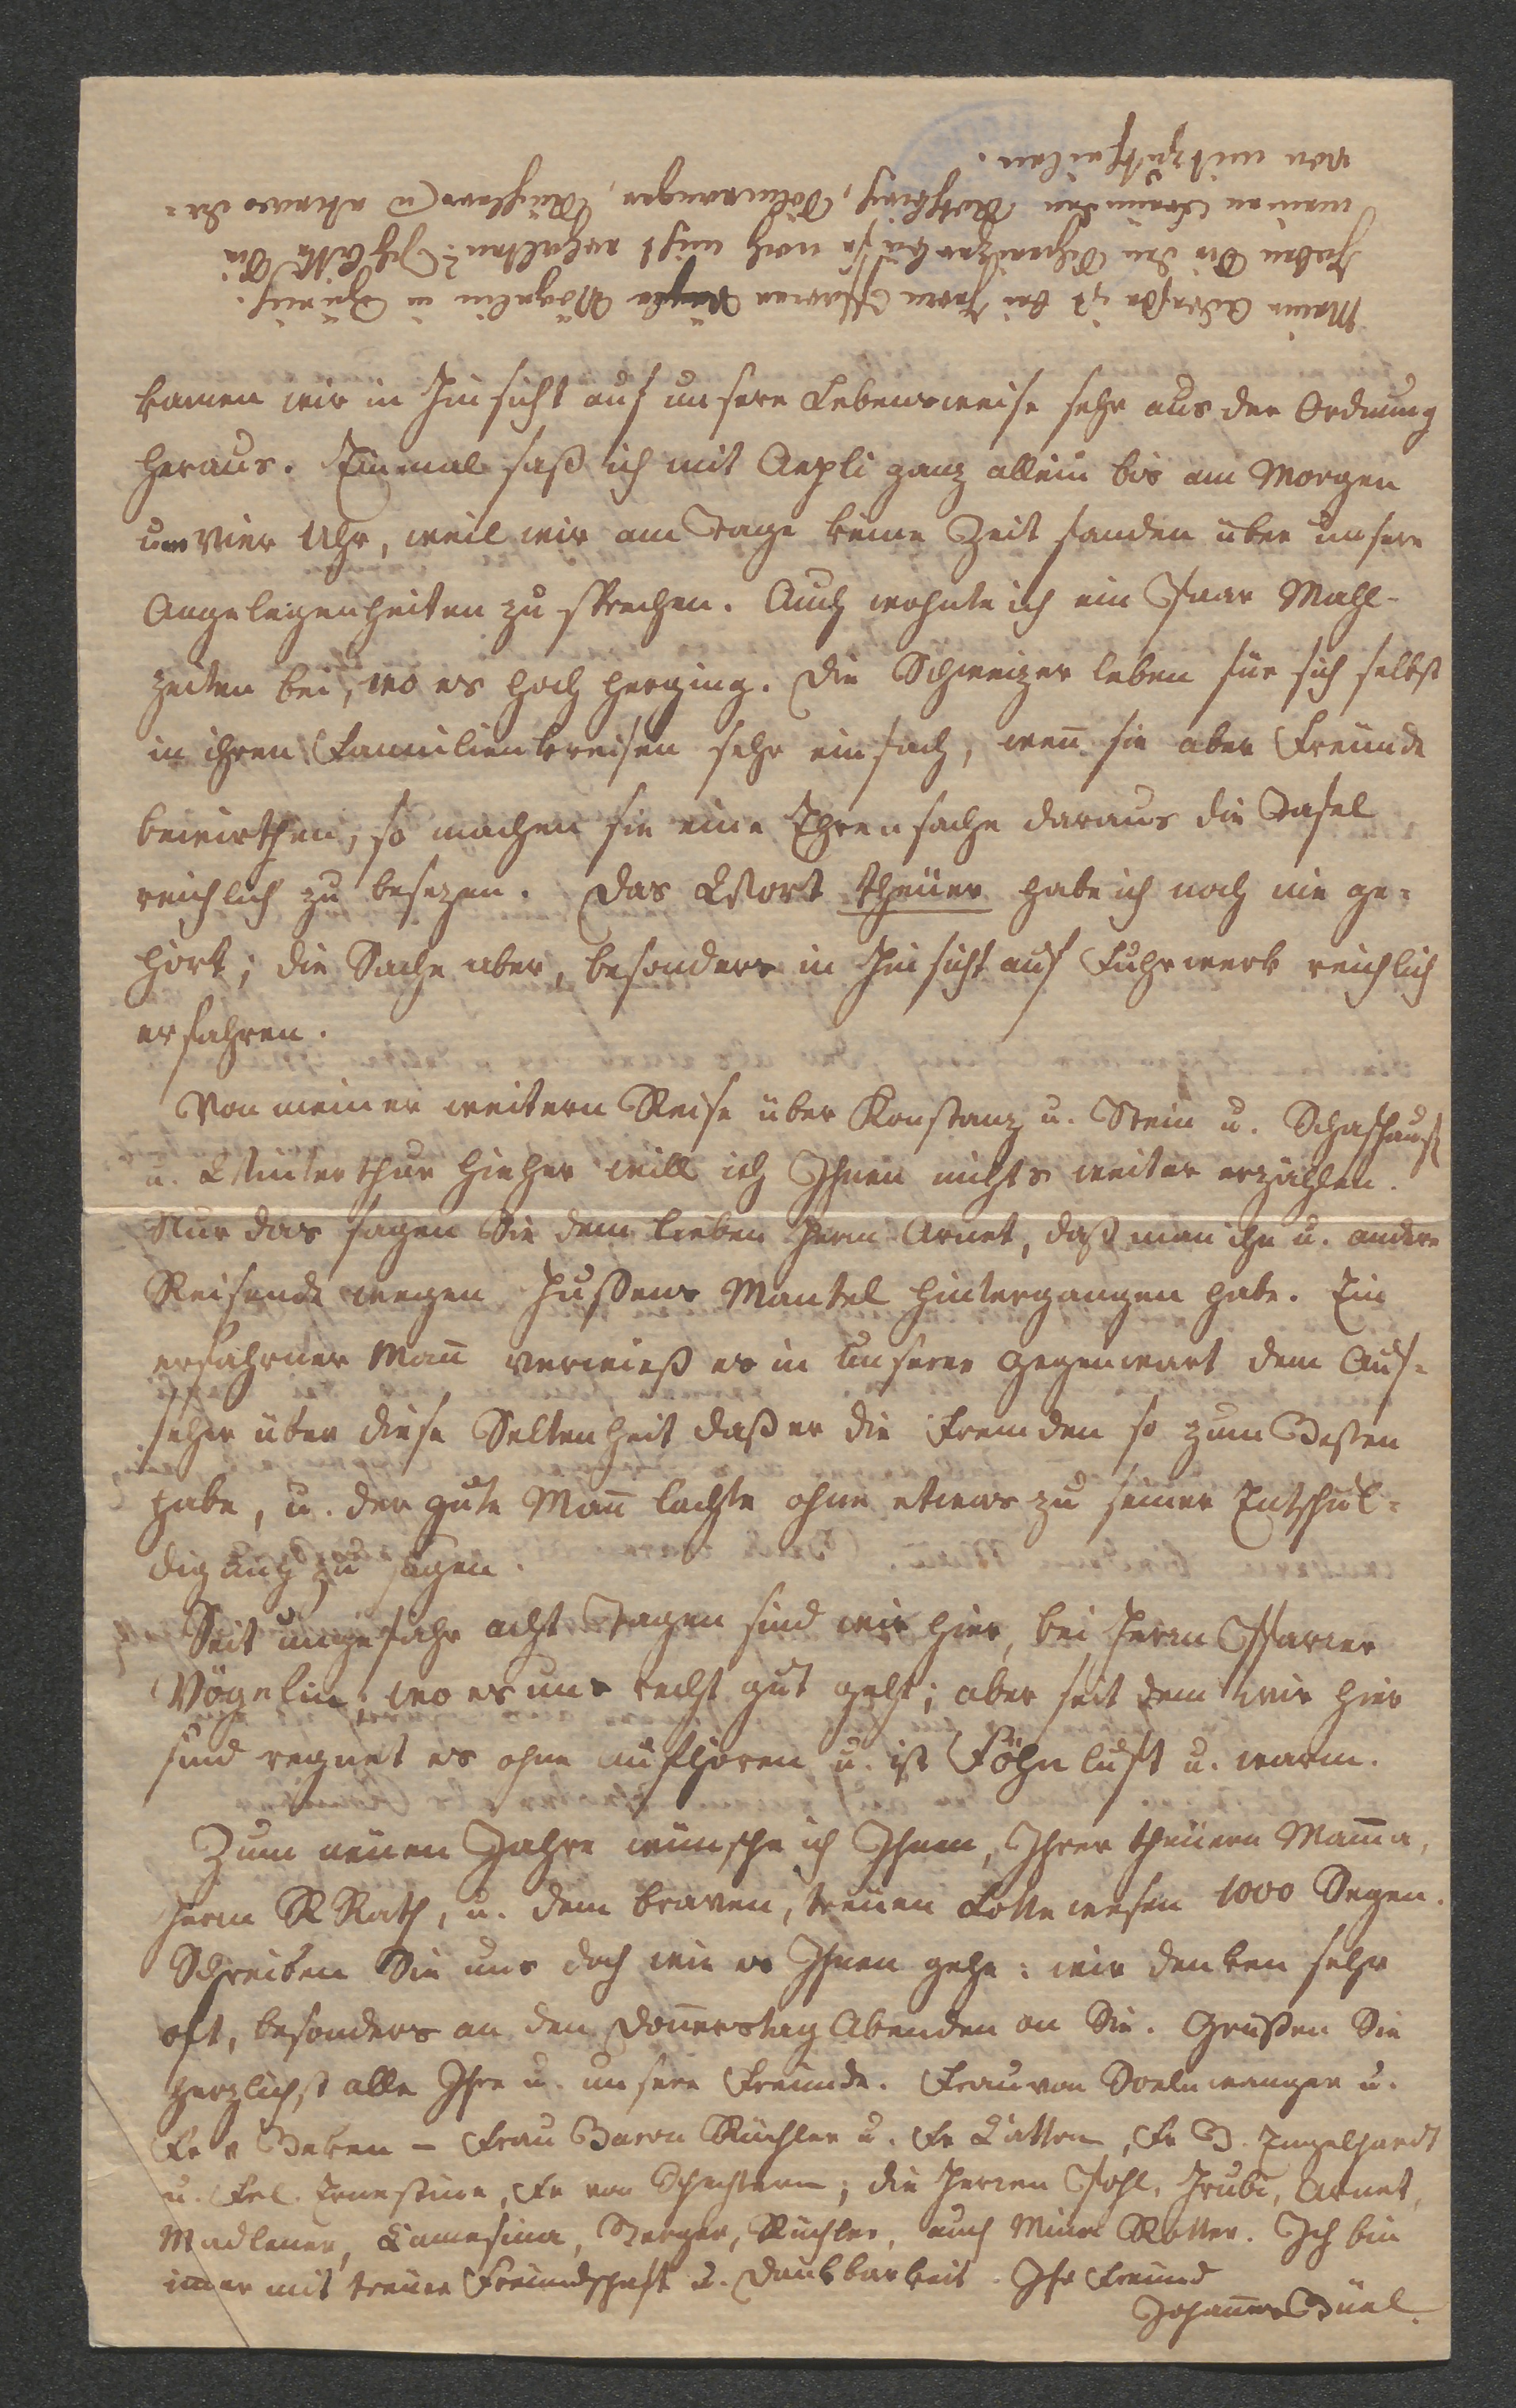 kamen wir in Hinsicht auf unsere Lebensweise sehr aus der Ordnung
heraus. Einmal saß ich mit Aepli ganz allein bis am Morgen
um Vier Uhr, weil wir am Tage keine Zeit fanden über unsere
Angelegenheiten zu sprechen. Auch wohnte ich ein Paar Mahl-
zeiten bei, wo es hoch herging. Die Schweizer leben für sich selbst
in ihren Familienkreisen sehr einfach, wen̄ sie aber Freunde
bewirthen, so machen sie eine Ehrensache daraus die Tafel
reichlich zu besezen. Das Wort theuer habe ich noch nie ge-
hört; die Sache aber, besonders in Hinsicht auf Fuhrwerk reichlich
erfahren.
Von meiner weitern Reise über Konstanz u. Stein u. Schafhaus̄
u. Winterthur hieher will ich Ihnen nichts weiter erzählen.
Nur das sagen Sie dem lieben Herrn Arnet, daß man ihn u. andere
Reisende wegen Hussens Mantel hintergangen habe. Ein
erfahrner Man̄ verwieß es in unserer Gegenwart dem Auf-
seher über diese Seltenheit daß er die Fremden so zum Besten
habe, u. der gute Man̄ lachte ohne etwas zu seiner Entschul-
digung zu sagen.
Seit ungefähr acht Tagen sind wir hier, bei Herrn Pfarrer
Vögelin, wo es uns recht gut geht; aber seit dem wir hier
sind regnet es ohne aufhören u. ist Föhnluft u. warm.
Zum neuen Jahre wünsche ich Ihnen, Ihrer theuern Mam̄a,
Herrn R Rath, u. dem braven, treuen Lottewesen 1000 Segen.
Schreiben Sie uns doch wie es Ihnen gehe: wir denken sehr
oft, besonders an den Don̄erstag Abenden an Sie. Grüßen Sie
herzlichst alle Ihre u. unsere Freunde. Frau von u.
Fr v – Frau Baron Küchler u. Fr , Fr B. Engelhardt
u. Frl. Ernestine, Fr von ; die Herren Pohl, Hrubi, Arnet,
Madlener, Camesina, Steger, Küchler, auch Mina Rotter. Ich bin
im̄er mit treuer Freundschaft u. Dankbarkeit. Ihr Freund
Johannes Büel.
Meine Adresse ist bei Herrn Pfarrer Vögelin in Zürich.
Haben Sie den noch nicht erhalten? Ich bitte Sie
meinen Freunden , , Küchler u etwas da-
von mitzutheilen.